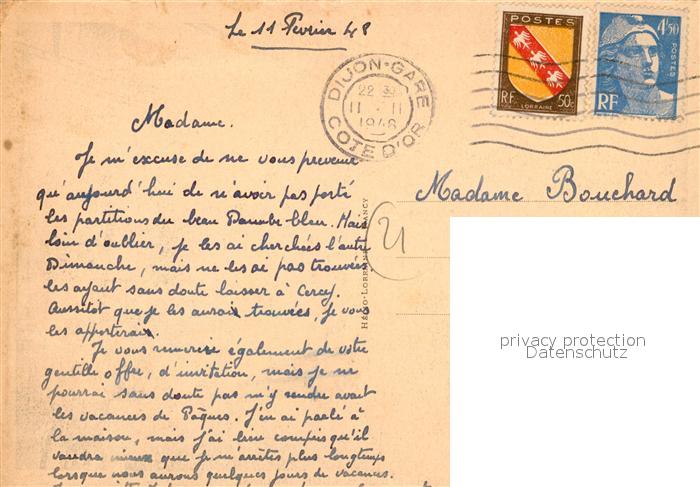 Le 11 Fevrier 48
POSTES
RF LORRAINE 50c
4f50
POSTES
RF
DIJON-GARE
22 30
11 - 11
1948
COTE D'OR
Madame.
Je m'excuse de ne vous prevenir
qu'aujourd'hui de n'avoir pas porté
les partitions du beau Danube bleu. Mais
loin d'oublier, je les ai cherchées l'autre
Dimanche, mais ne les ai pas trouvées
les ayant sans doute laisser à Cercey.
Aussitôt que je les aurais trouvées, je vous
les apporterais.
Je vous remercie également de votre
gentille offre, d'invitation, mais je ne
pourrai sans doute pas m'y rendre avant
les vacances de Pâques. J'en ai parlé à
la maison, mais j'ai bien compris qu'il
vaudra mieux que je m'arrêtes plus longtemps
lorsque nous aurons quelques jours de vacances.
Madame Bouchard
21
HÉLIO-LORRAINE NANCY
privacy protection
Datenschutz